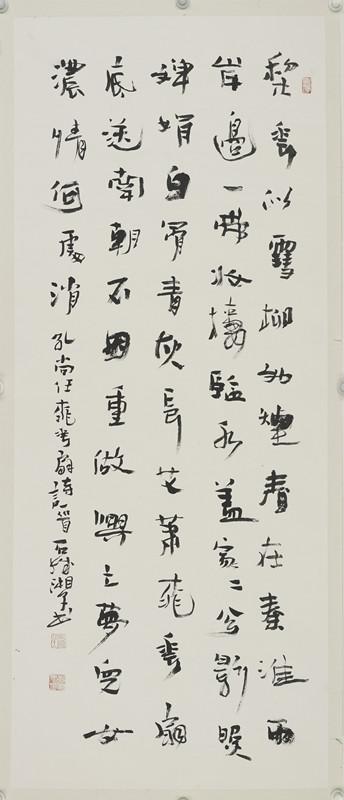 梨花似雪柳如煙春在秦淮兩
岸邊一帶妝樓臨水蓋家〻分影照
嬋娟白骨青灰長艾蕭桃花扇
底送南朝不因重做興亡夢兒女
濃情何處消 孔尚任桃花扇詩一首